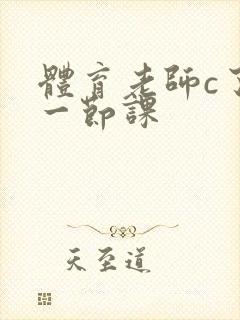 體育老師c了
一節課
天至道